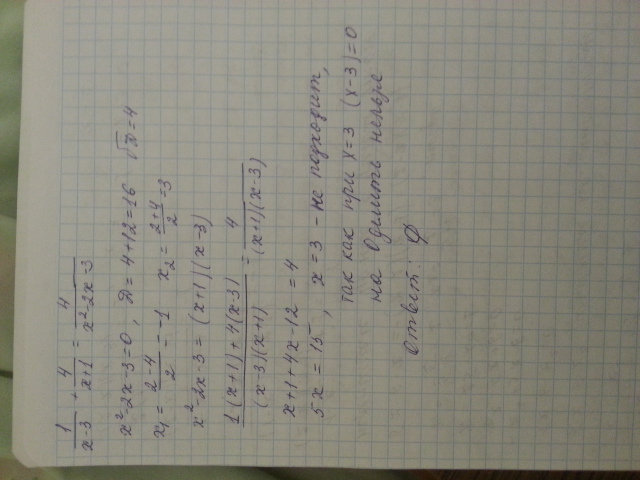 1/(x-3) + 4/(x+1) = 4/(x²-2x-3)
x²-2x-3=0, D=4+12=16 √D=4
x₁ = (2-4)/2 = -1 x₂ = (2+4)/2 = 3
x²-2x-3 = (x+1)(x-3)
(1(x+1)+4(x-3))/((x-3)(x+1)) = 4/((x+1)(x-3))
x+1+4x-12=4
5x=15, x=3 - не подходит,
так как при x=3 (x-3)=0
на 0 делить нельзя
Ответ: ∅